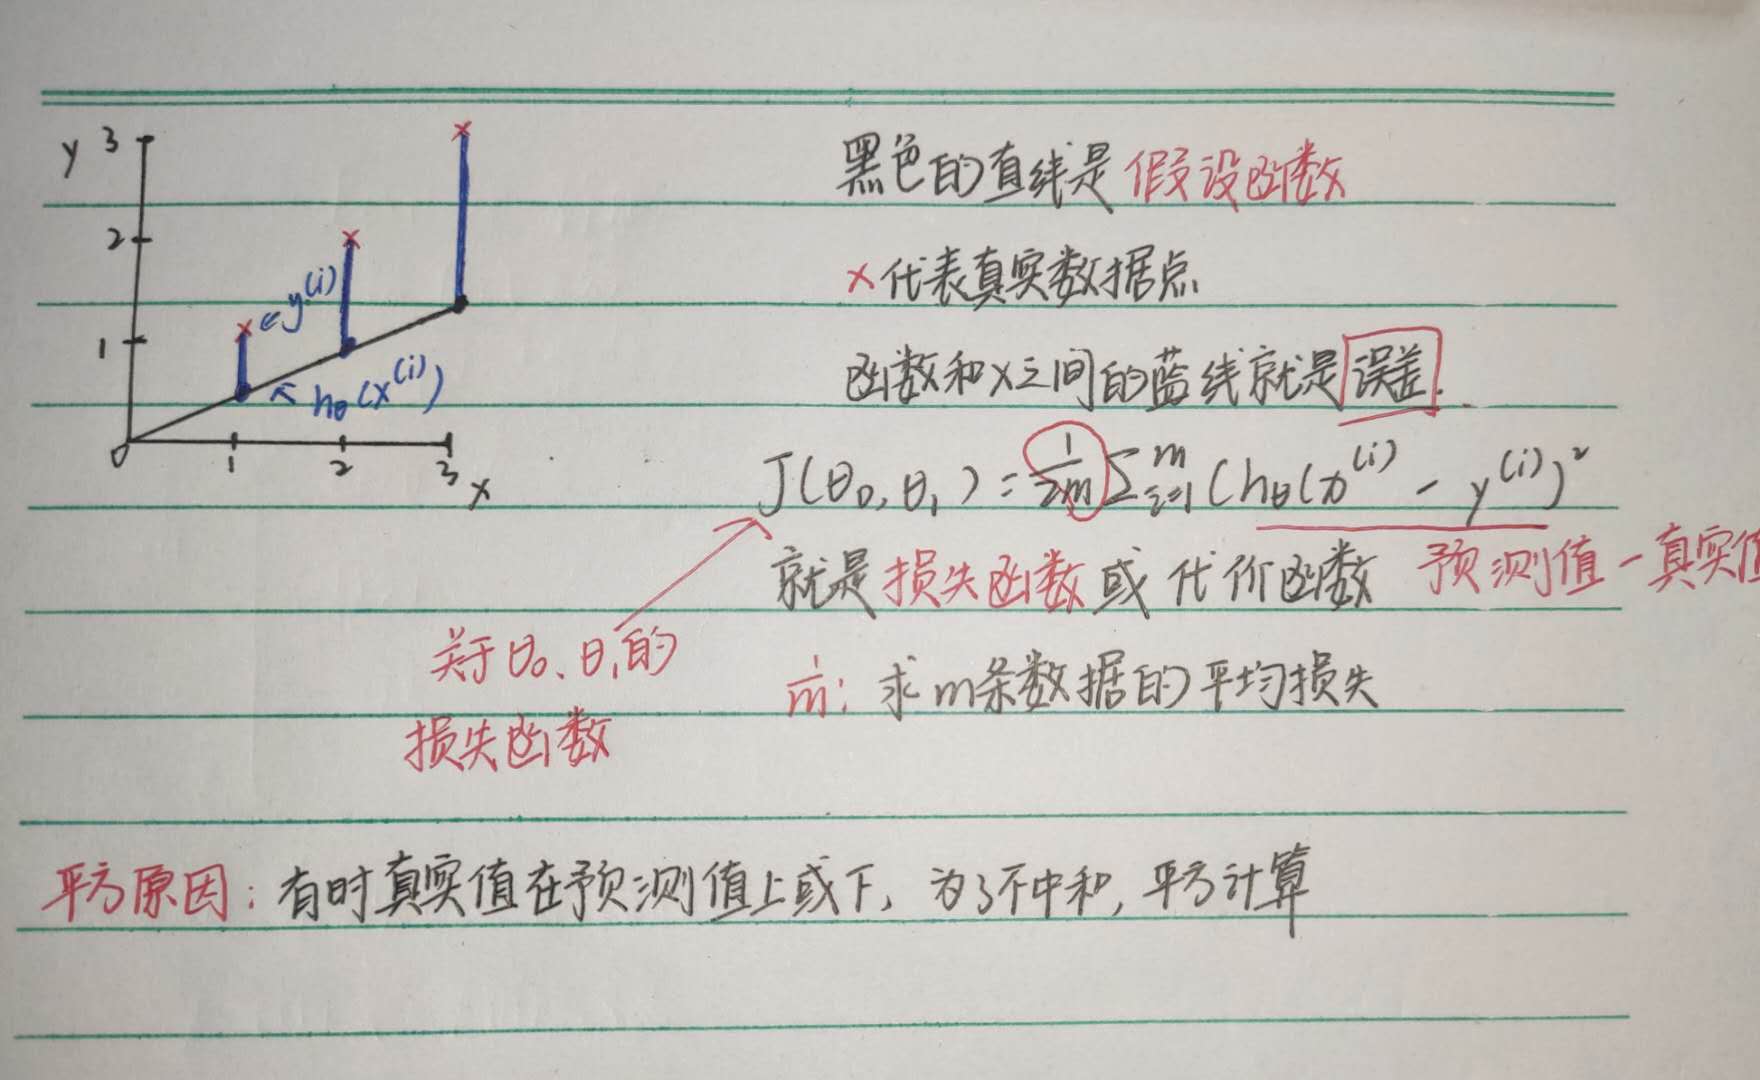 y 3
2
1
0
1 2 3 x
y⁽ⁱ⁾
hθ(x⁽ⁱ⁾)
黑色的直线是 假设函数
×代表真实数据点
函数和×之间的蓝线就是误差.
J(θ₀,θ₁) = 1/2m Σᵢ₌₁ᵐ (hθ(x⁽ⁱ⁾ - y⁽ⁱ⁾)²
就是损失函数或代价函数 预测值-真实值
关于θ₀、θ₁的
损失函数
1/m: 求m条数据的平均损失
平方原因:有时真实值在预测值上或下,为了不中和,平方计算